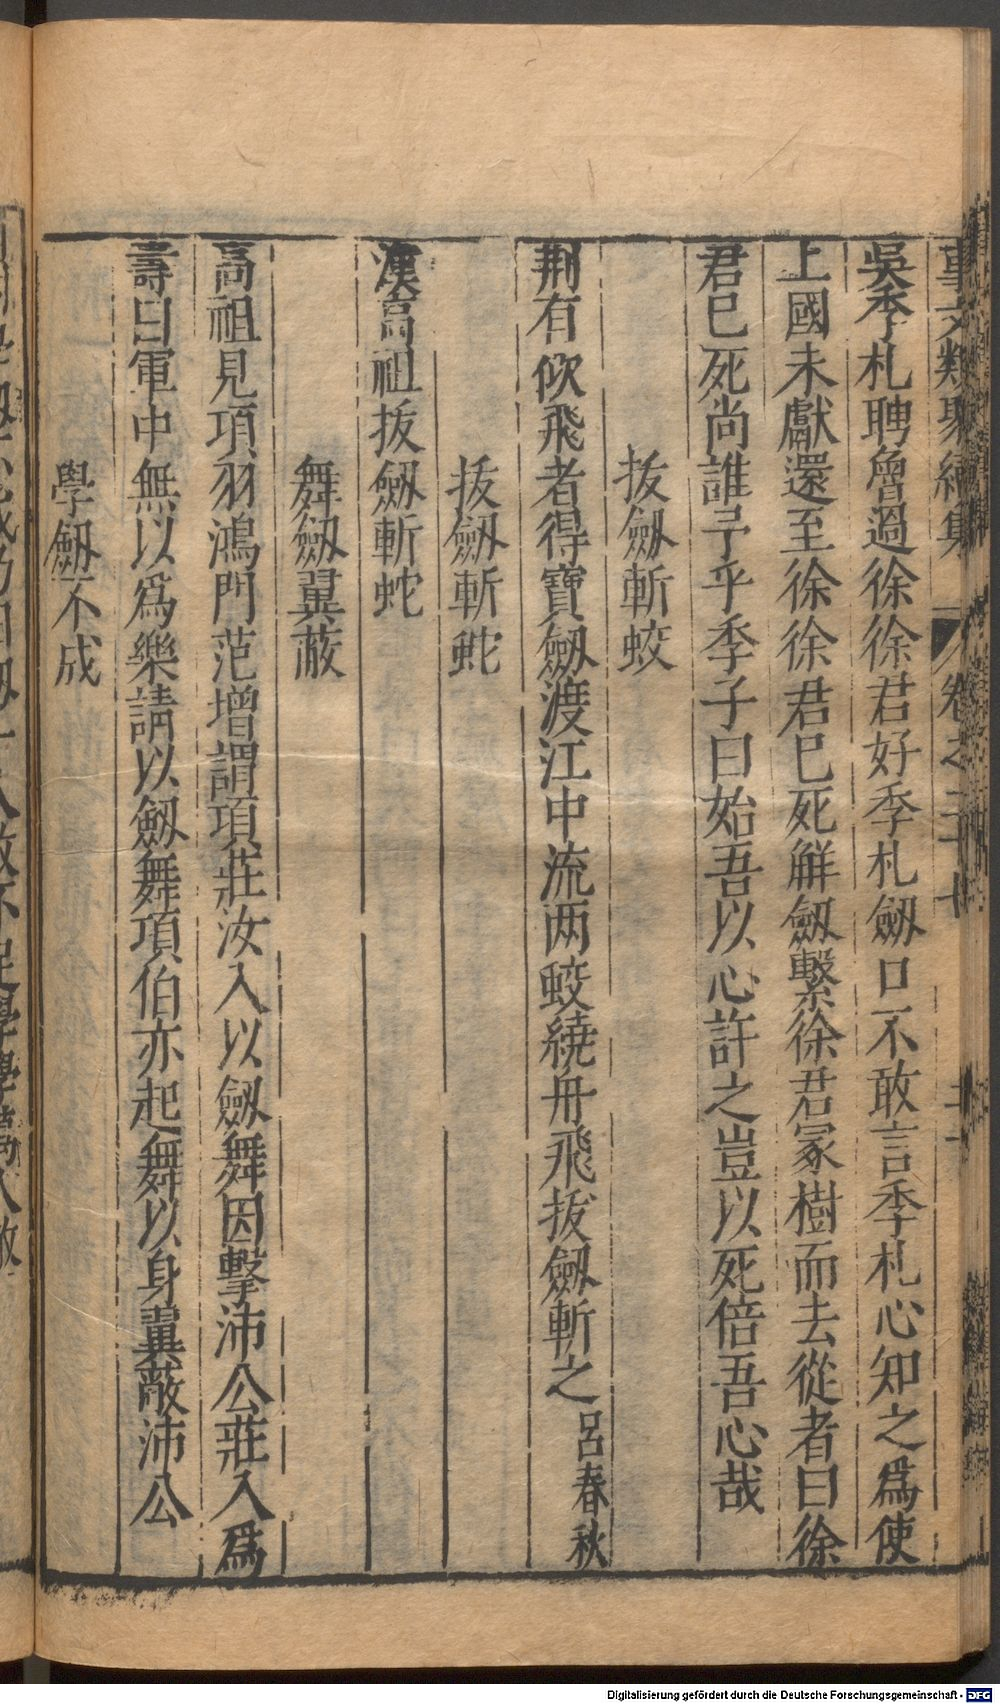 事文類聚續集 卷之二十七 二十一
吳季札聘魯過徐徐君好季札劔口不敢言季札心知之爲使
上國未獻還至徐徐君已死解劔繫徐君冢樹而去從者曰徐
君已死尚誰予乎季子曰始吾以心許之豈以死倍吾心哉
拔劔斬蛟
荆有佽飛者得寶劔渡江中流两蛟繞舟飛拔劔斬之呂春秋
拔劔斬蛇
漢高祖拔劔斬蛇
舞劔翼蔽
高祖見項羽鴻門范增謂項莊汝入以劔舞因擊沛公莊入爲
壽曰軍中無以爲樂請以劔舞項伯亦起舞以身翼蔽沛公
學劔不成
Digitalisierung gefördert durch die Deutsche Forschungsgemeinschaft - DFG